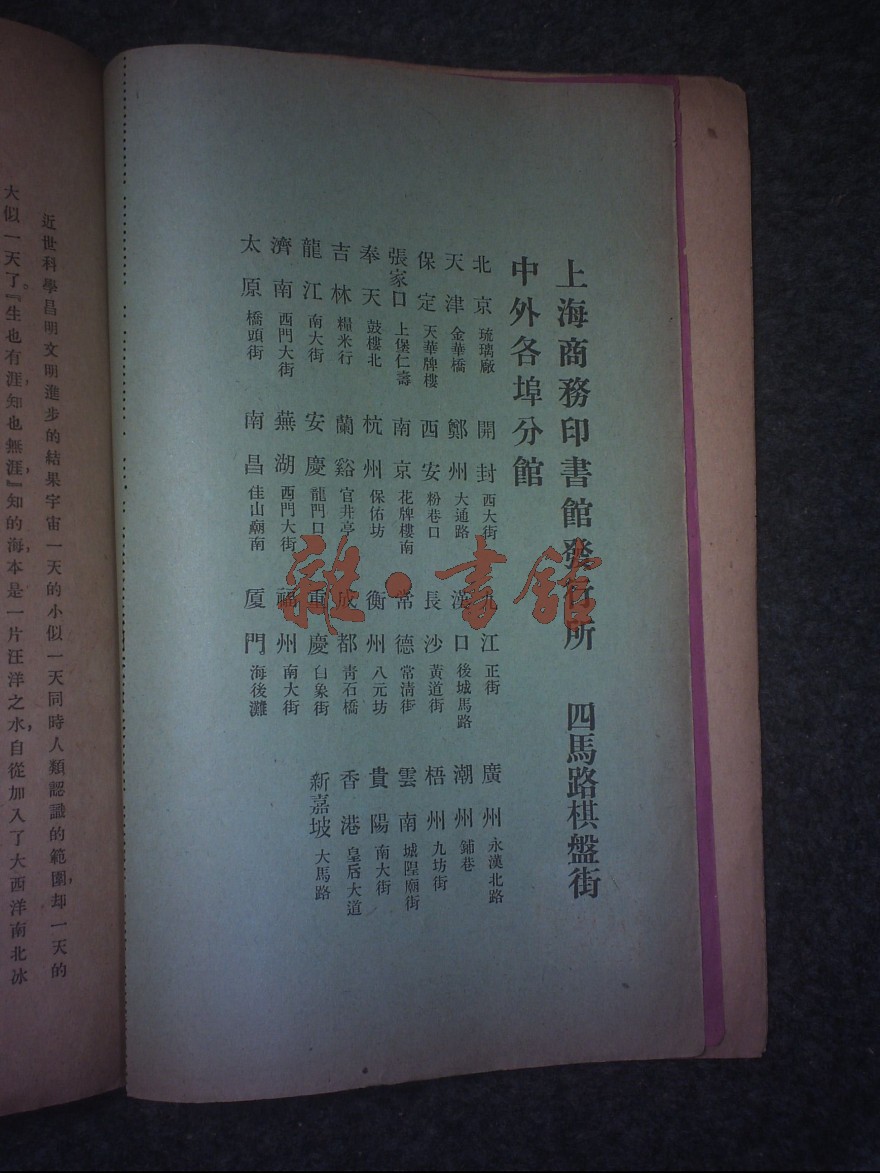 上海商務印書館發行所 四馬路棋盤街
中外各埠分館
北京 琉璃廠 開封 西大街 九江 正街 廣州 永漢北路
天津 金華橋 鄭州 大通路 漢口 後城馬路 潮州 鋪巷
保定 天華牌樓 西安 粉巷口 長沙 黃道街 梧州 九坊街
張家口 上堡仁壽 南京 花牌樓南 常德 常清街 雲南 城隍廟街
奉天 鼓樓北 杭州 保佑坊 衡州 八元坊 貴陽 南大街
吉林 糧米行 蘭谿 官井亭 成都 青石橋 香港 皇后大道
龍江 南大街 安慶 龍門口 重慶 白象街 新嘉坡 大馬路
濟南 西門大街 蕪湖 西門大街 福州 南大街
太原 橋頭街 南昌 佳山廟南 厦門 海後灘
雜·書館
近世科學昌明文明進步的結果宇宙一天的小似一天同時人類認識的範圍,却一天的
大似一天了。『生也有涯,知也無涯,』知的海,本是一片汪洋之水,自從加入了大西洋南北冰